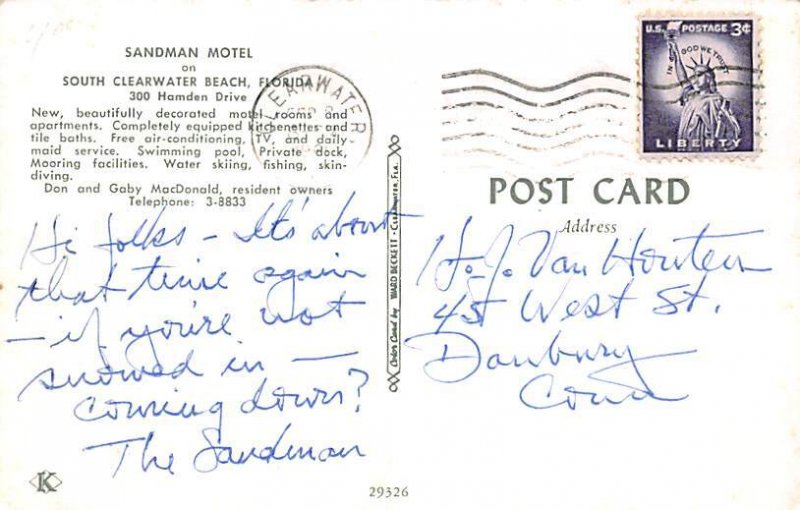 SANDMAN MOTEL
on
SOUTH CLEARWATER BEACH, FLORIDA
300 Hamden Drive
New, beautifully decorated motel rooms and
apartments. Completely equipped kitchenettes and
tile baths. Free air-conditioning, TV, and daily-
maid service. Swimming pool, Private dock,
Mooring facilities. Water skiing, fishing, skin-
diving.
Don and Gaby MacDonald, resident owners
Telephone: 3-8833
Hi folks - It's about
that time again
- if you're not
snowed in -
coming down?
The Sandman
K
CLEARWATER
Color Card by WARD BECKETT - CLEARWATER, FLA.
U.S. POSTAGE 3¢
IN GOD WE TRUST
LIBERTY
POST CARD
Address
H. J. Van Houten
45 West St.
Danbury
Conn
29326